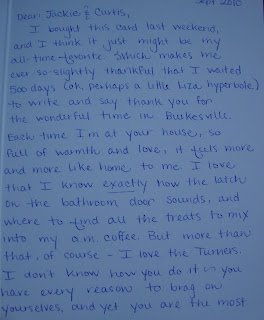 Sept 2010
Dear Jackie & Curtis,
I bought this card last weekend,
and I think it just might be my
all-time-favorite. Which makes me
ever-so-slightly thankful that I waited
500 days (ok, perhaps a little Liza hyperbole)
to write and say thank you for
the wonderful time in Burkesville.
Each time I'm at your house, so
full of warmth and love, it feels more
and more like home to me. I love
that I know exactly how the latch
on the bathroom door sounds, and
where to find all the treats to mix
into my a.m. coffee. But more than
that, of course - I love the Turners.
I don't know how you do it - you
have every reason to brag on
yourselves, and yet you are the most